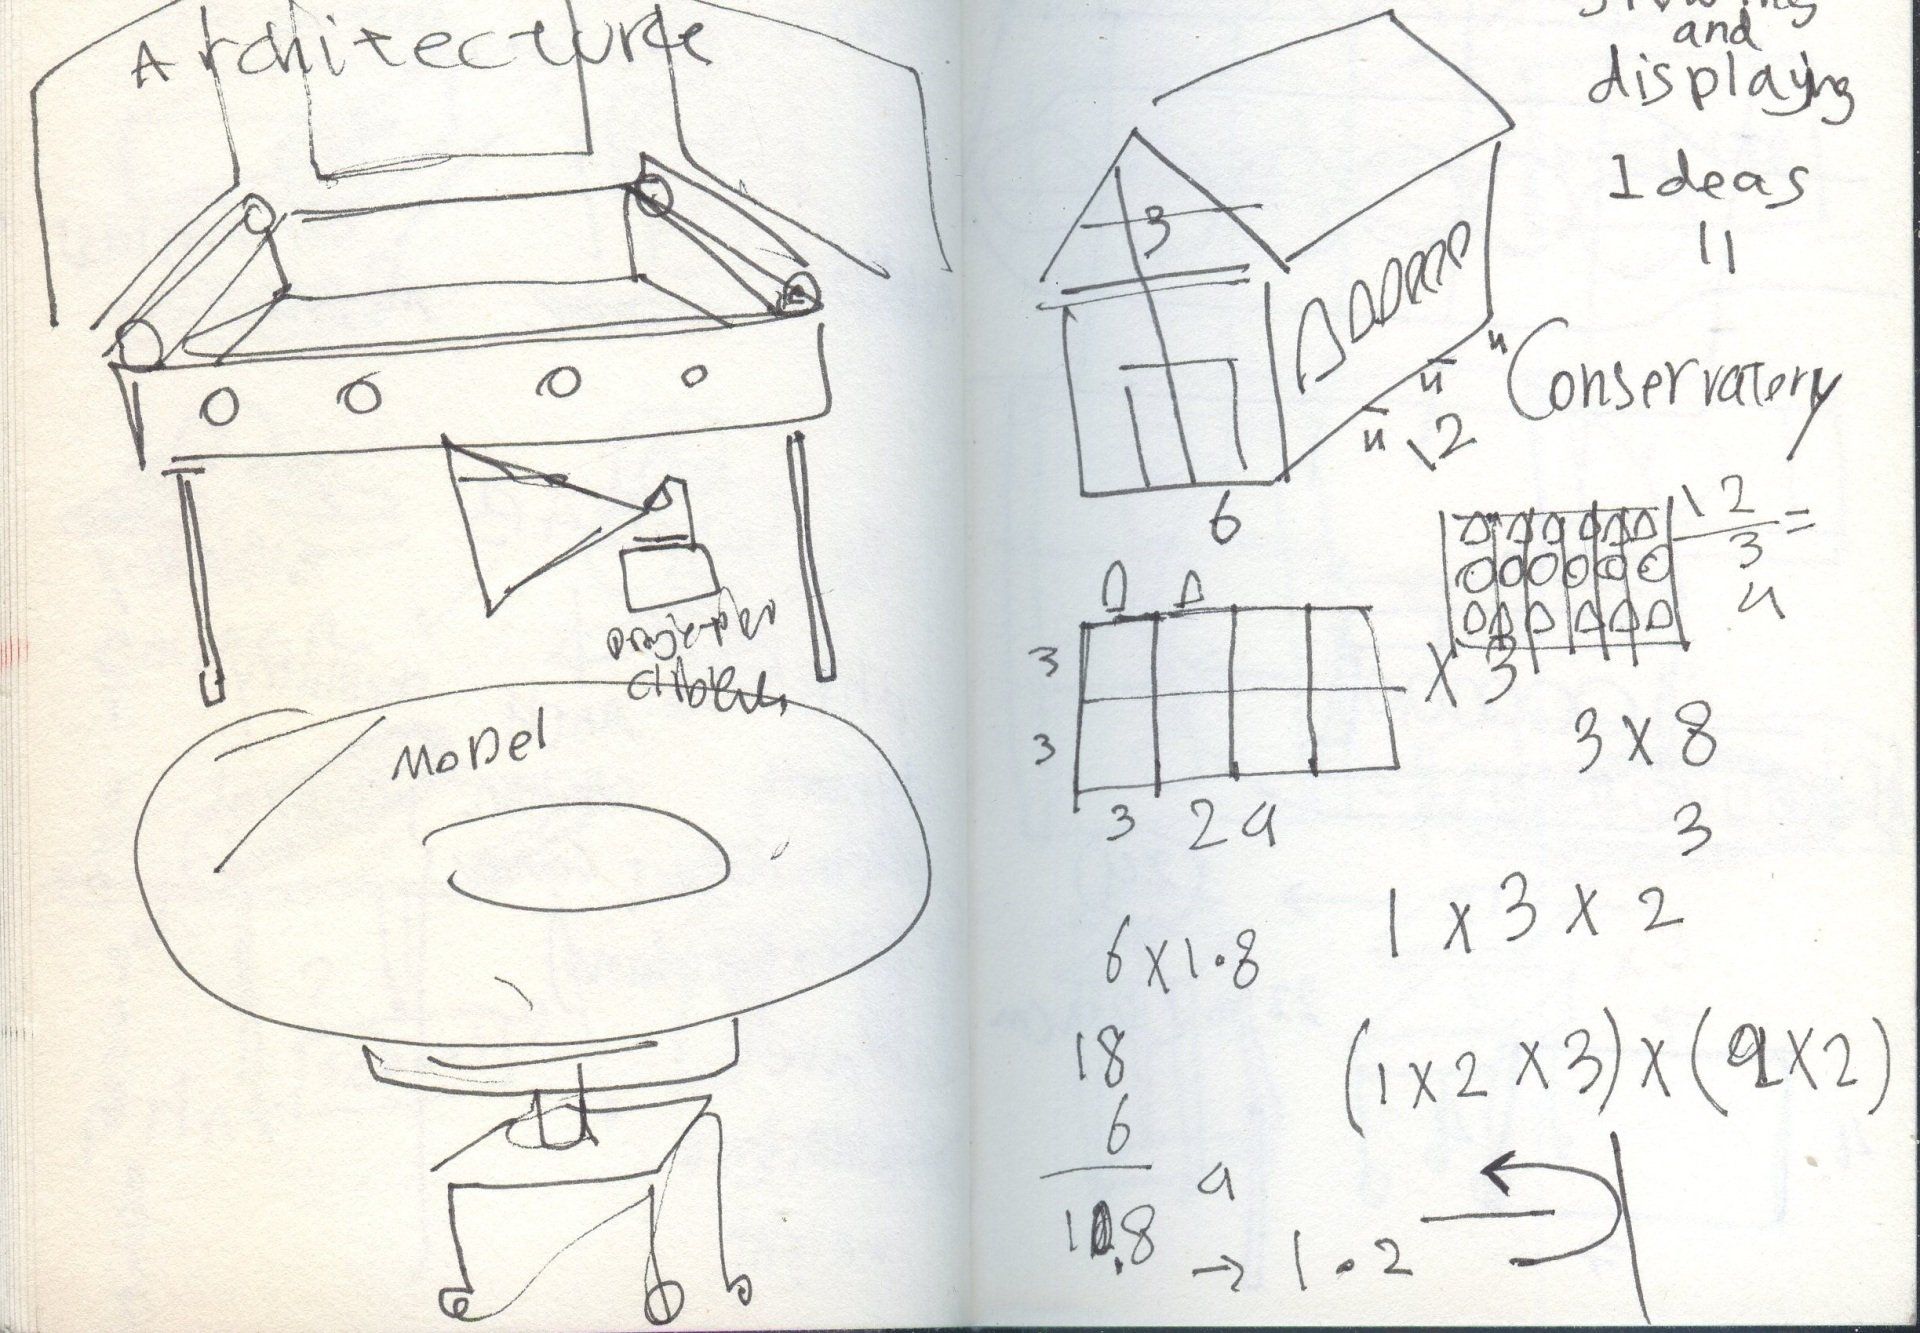 Architecture
MODel
and
displaying
Ideas
11
"Conservatory
3
4
4
12
6
12
3
=
4
3
3
3 2 4
x 3
3 x 8
3
1 x 3 x 2
6 x 1.8
(1 x 2 x 3) x (9 x 2)
18
6
10.8
→ 1.2